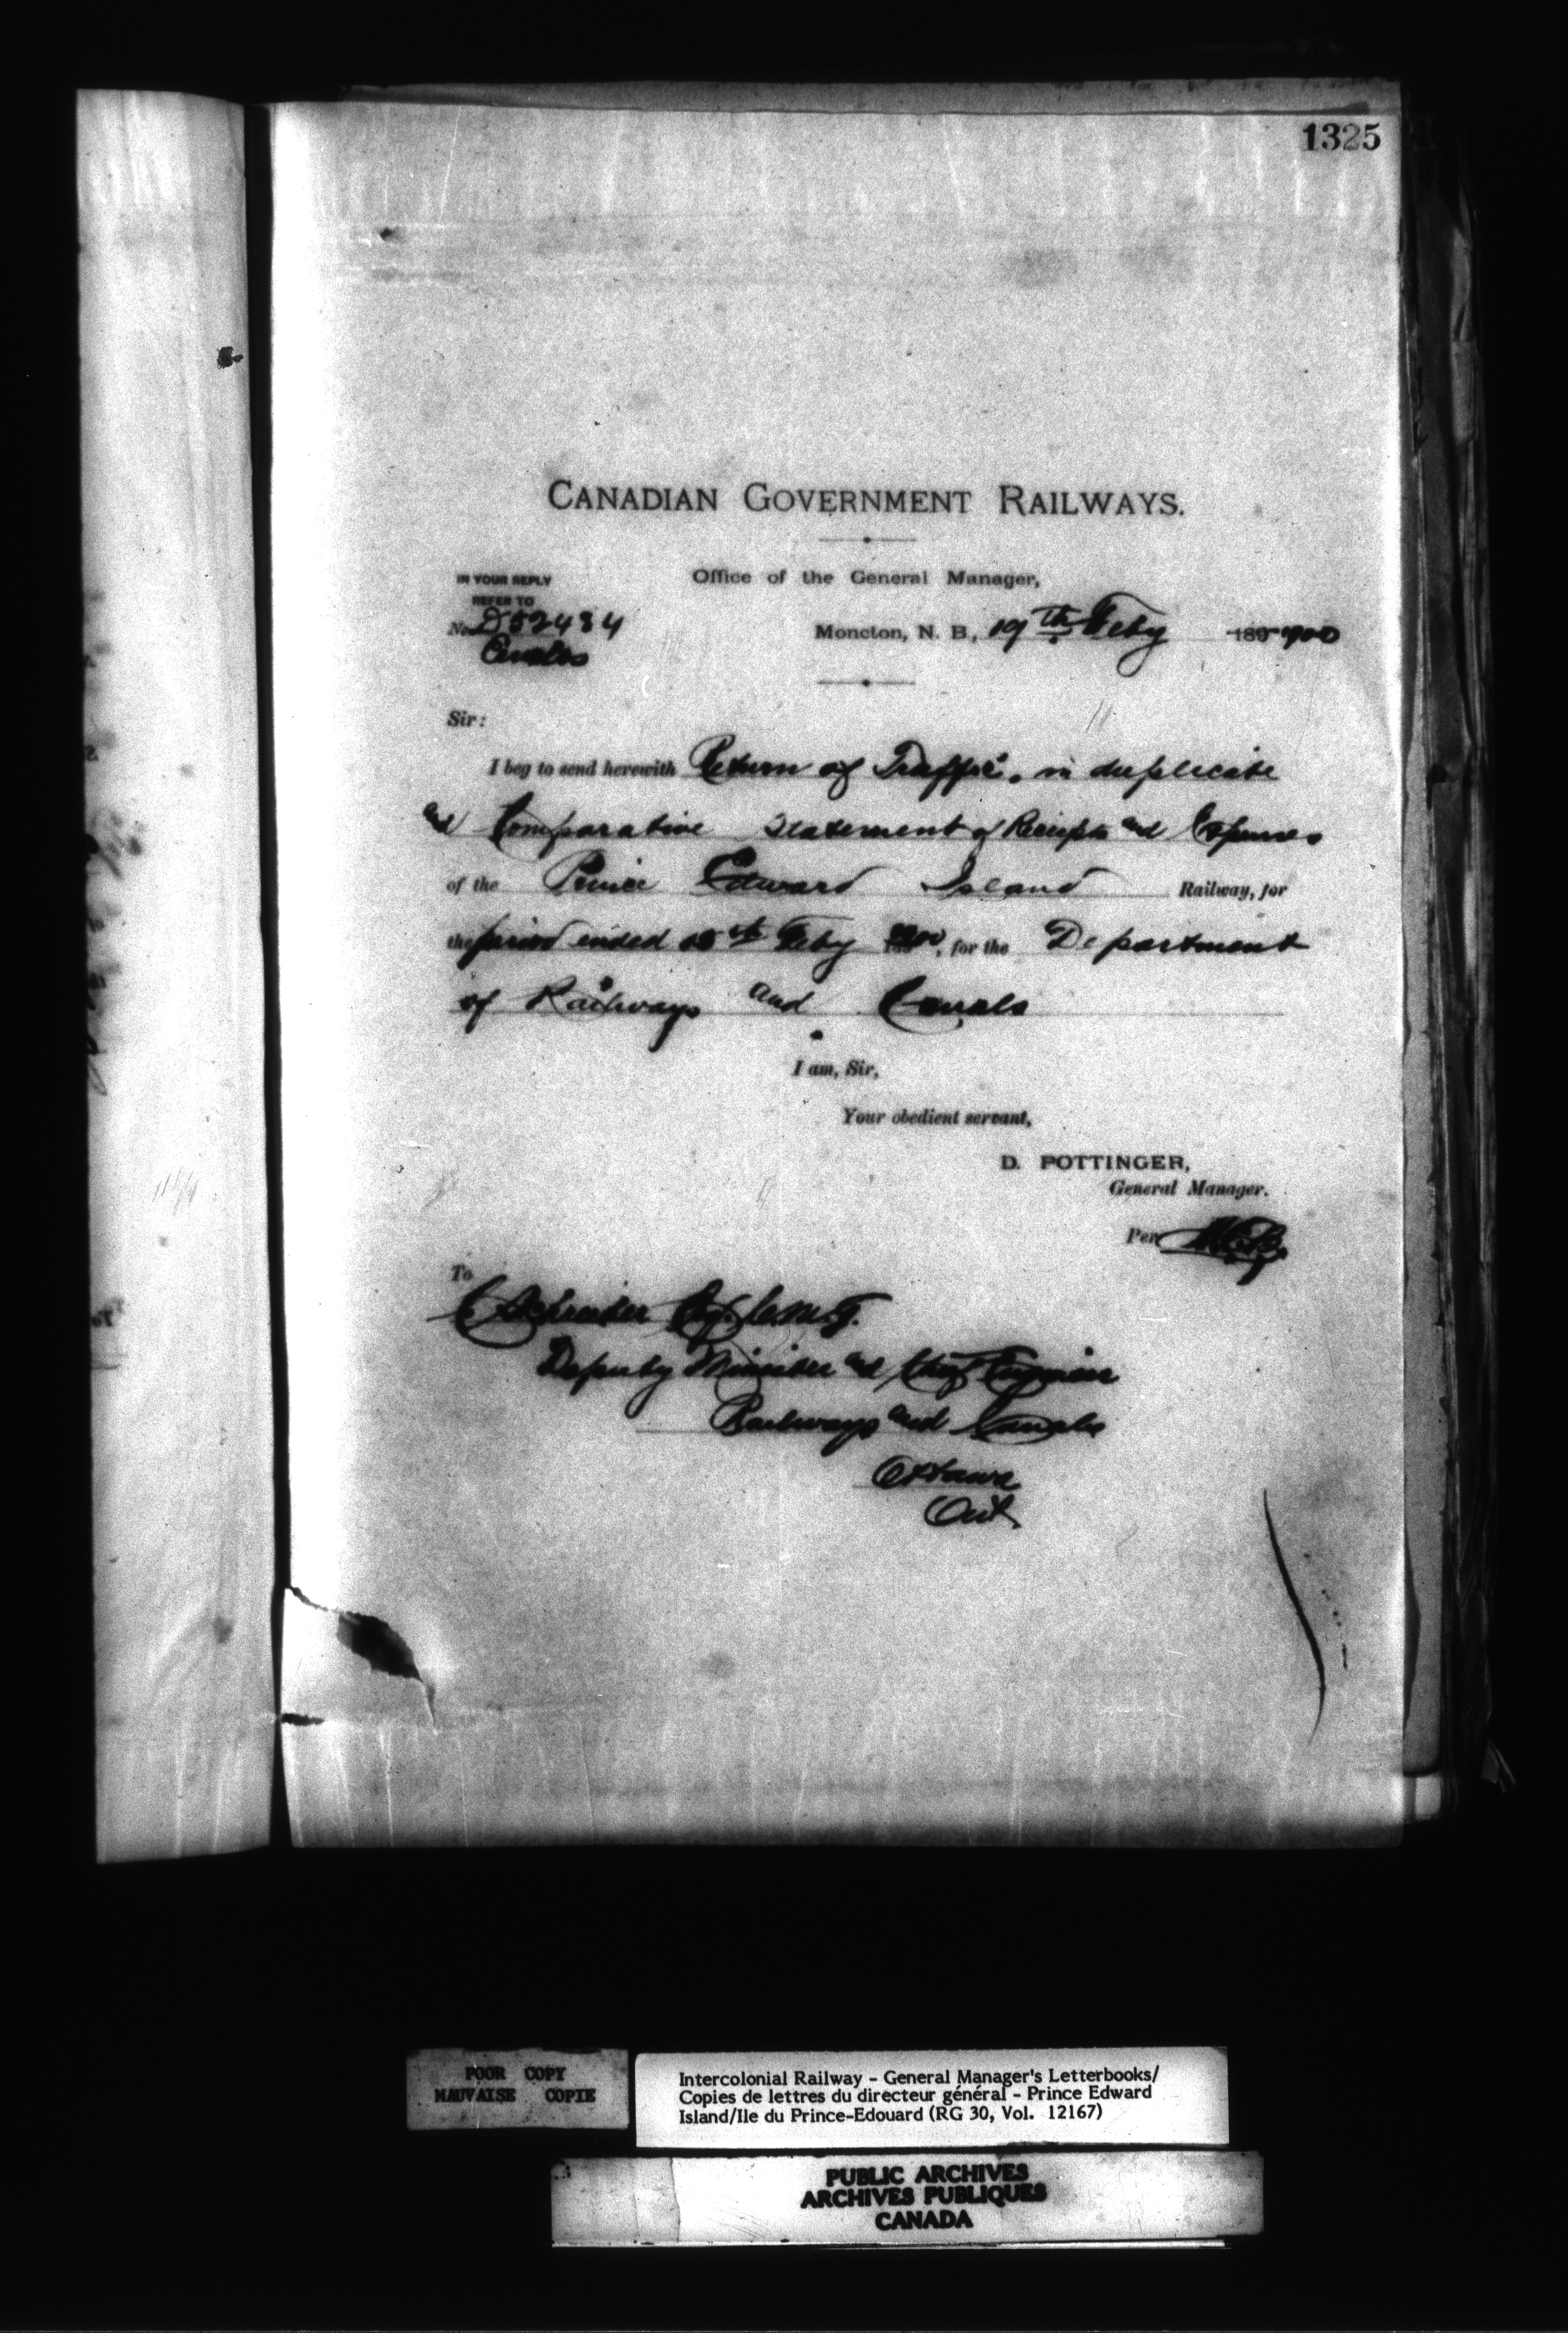 1325
CANADIAN GOVERNMENT RAILWAYS.
IN YOUR REPLY
REFER TO
No. D52434
Office of the General Manager,
Moncton, N. B., 19th Feby 1900
Sir:
I beg to send herewith Return of Traffic, in duplicate
and Comparative Statement of Receipts and Expenses
of the Prince Edward Island Railway, for
the period ended 15th Feby 1900, for the Department
of Railways and Canals
I am, Sir,
Your obedient servant,
D. POTTINGER,
General Manager.
Per
To
C Schreiber Esq. C.M.G.
Deputy Minister and Chief Engineer
Railways and Canals
Ottawa
Ont
POOR COPY
MAUVAISE COPIE
Intercolonial Railway - General Manager's Letterbooks/
Copies de lettres du directeur général - Prince Edward
Island/Ile du Prince-Edouard (RG 30, Vol. 12167)
PUBLIC ARCHIVES
ARCHIVES PUBLIQUES
CANADA